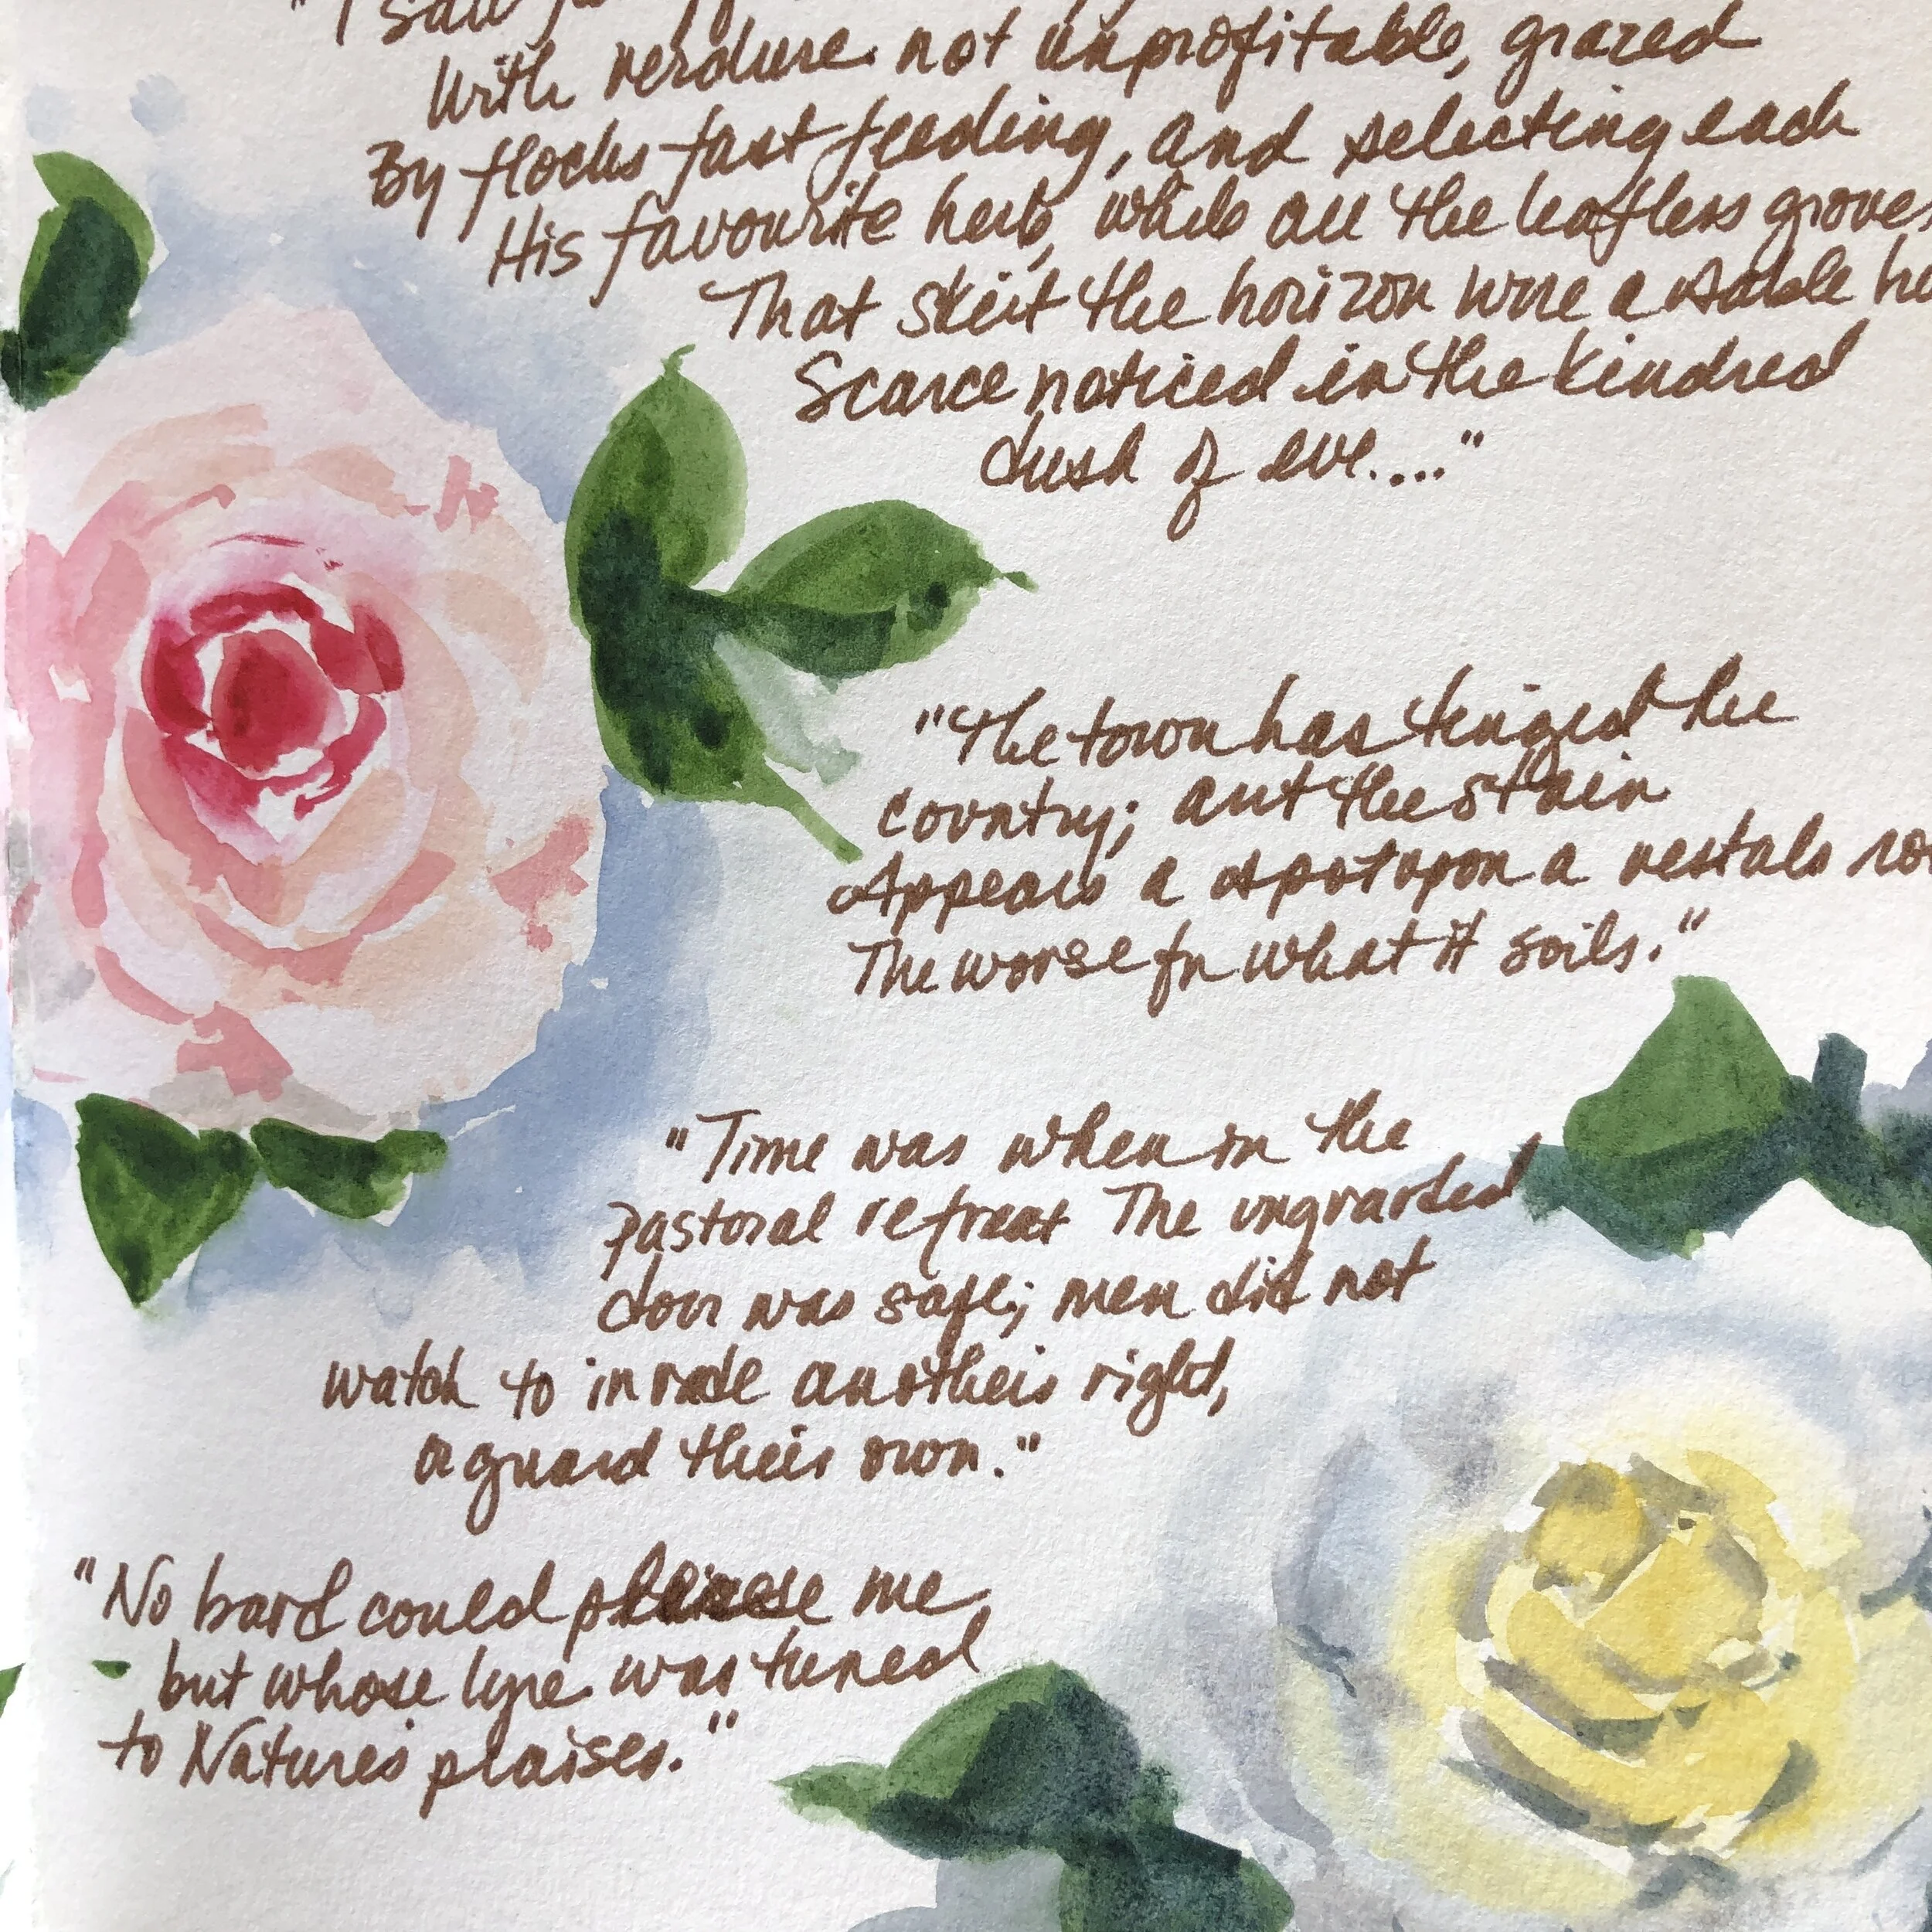 "I saw
With verdure not unprofitable, grazed
By flocks fast feeding, and selecting each
His favourite herb, while all the leafless groves
That skirt the horizon wore a sable
Scarce noticed in the kindred
dusk of eve...."
"The town has tinged the
country; and the stain
Appears a spot upon a vestals
The worse for what it soils."
"Time was when in the
pastoral retreat The unguarded
door was safe; men did not
watch to invade another's right,
or guard their own."
"No bard could please me
but whose lyre was tuned
to Nature's praises."